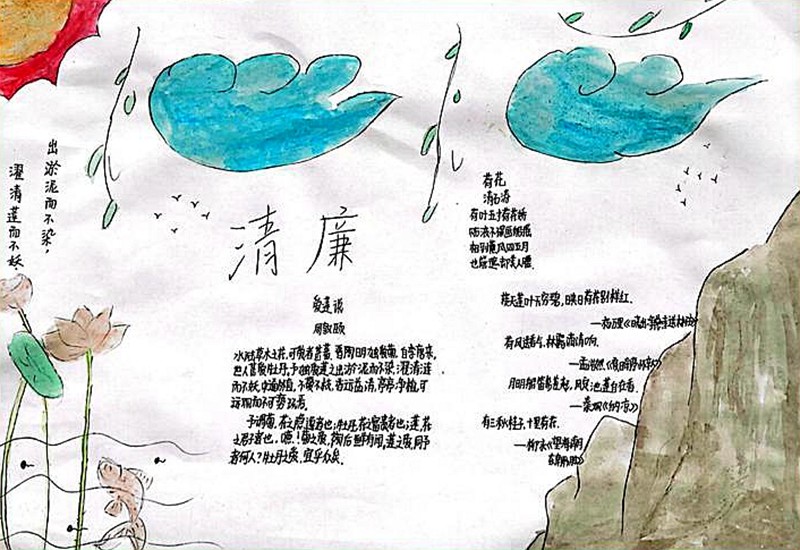 出淤泥而不染,
濯清莲而不妖.
清廉
爱莲说
周敦颐
水陆草木之花,可爱者甚蕃。晋陶渊明独爱菊。自李唐来,
世人甚爱牡丹,予独爱莲之出淤泥而不染,濯清涟
而不妖,中通外直,不蔓不枝,香远益清,亭亭净植,可
远观而不可亵玩焉。
予谓菊,花之隐逸者也;牡丹,花之富贵者也;莲,花
之君子者也。噫!菊之爱,陶后鲜有闻,莲之爱,同予
者何人?牡丹之爱,宜乎众矣.
荷花
清石涛
荷叶五寸荷花娇
贴波不碍画船摇
相到薰风四五月
也能遮却美人腰
接天莲叶无穷碧,映日荷花别样红.
—杨万里《晓出净慈寺送林子方》
荷风送香气,竹露滴清响.
—孟浩然《夏日南亭怀辛大》
月明船笛参差起,风定池莲自在香.
—秦观《纳凉》
有三秋桂子,十里荷花.
—柳永《望海潮
东南形胜》